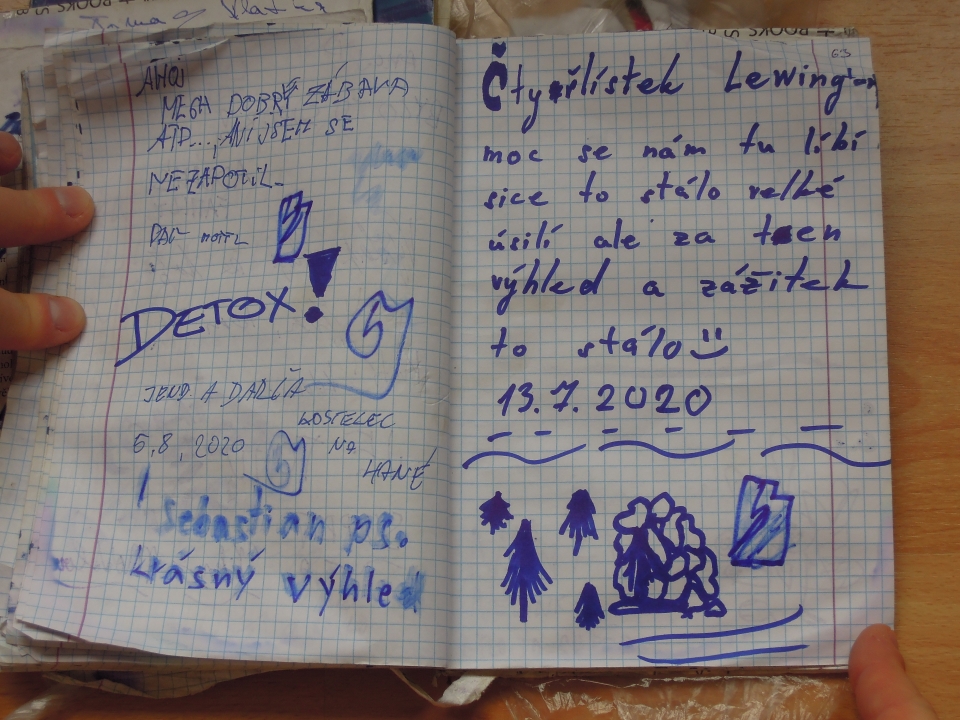 AHOJ
MEGA DOBRÝ ZÁBAVA
ATD..., ANI JSEM SE
NEZAPOTIL
DETOX!
A
KOSTELEC
5,8,2020 NA
HANÉ
Sebastian ps.
krásný výhled
63
Čtyřlístek
moc se nám tu líbí
sice to stálo velké
úsilí ale za ten
výhled a zážitek
to stálo
13.7.2020